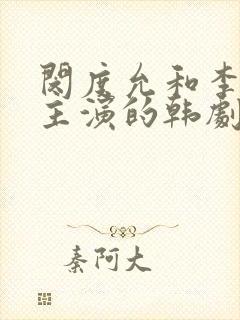 閔度允和李
主演的韩劇
秦阿大